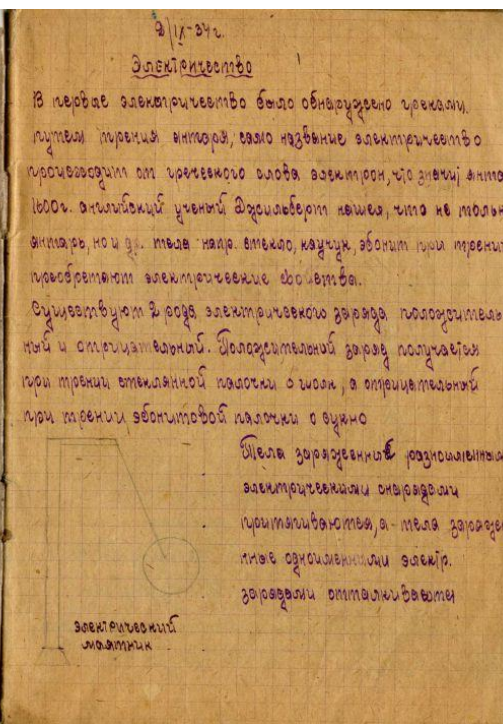 2/IX-34г.
Электричество
В первые электричество было обнаружено греками.
путем трения янтаря, само название электричество
происходит от греческого слова электрон, что значит янта
1600г. английский ученый Джильберт нашел, что не тольк
янтарь, но и др. тела напр. стекло, каучук, эбонит при трени
преобретают электрические свойства.
Существуют 2 рода электрического заряда положитель
ный и отрицательный. Положительный заряд получается
при трении стеклянной палочки о шолк, а отрицательный
при трении эбонитовой палочки о сукно
Тела заряженные разноименным
электрическими снарядами
притягиваются, а тела заряже
нные одноименными электр.
зарядами отталкиваются
электрический
маятник